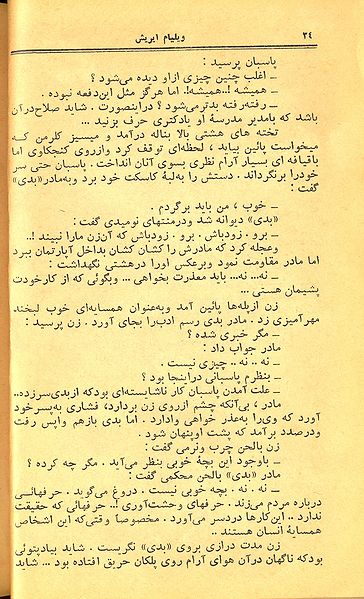 ۲۴ ویلیام ایریش
پاسبان پرسید :
ـ اغلب چنین چیزی ازاو دیده می‌شود ؟
ـ همیشه !..همیشه!. اما هرگز مثل این‌دفعه نبوده .
ـ رفته‌رفته بدترمی‌شود؟ دراینصورت . شاید صلاح‌درآن
باشد که بامدیر مدرسهٔ او یادکتری حرف بزنید ...
تخته های هشتی بالا بناله درآمد و میسیز کلرمن کـه
میخواست پائین بیاید ، لحظه‌ای توقف کرد وازروی کنجکاوی اما
باقیافه ای بسیار آرام نظری بسوی آنان انداخت . پاسبان حتی سر
خودرا برنگرداند . دستش را به‌لبهٔ کاسکت خود برد وبه‌مادر«بدی»
گفت :
ـ خوب ، من باید برگردم .
«بدی» دیوانه شد ودرمنتهای نومیدی گفت :
ـ برو . زودباش . برو . زودباش که آن‌زن مارا نبیند !..
وعجله کرد که مادرش را کشان کشان بداخل آپارتمان ببرد
اما مادر مقاومت نمود وبرعکس اورا درهشتی نگهداشت :
ـ نه... نه... باید معذرت بخواهی ... وبگوئی که از کارخودت
پشیمان هستی ...
زن ازپله‌ها پائین آمد وبه‌عنوان همسایه‌ای خوب لبخند
مهرآمیزی زد . مادر بدی رسم ادب‌را بجای آورد . زن پرسید :
ـ مگر خبری شده ؟
مادر جواب داد :
ـ نه .. نه .. چیزی نیست .
ـ بنظرم پاسبانی دراینجا بود ؟
ـ علت آمدن پاسبان کار ناشایسته‌ای بودکه ازبدی‌سرزده..
مادر ، بی‌آنکه چشم ازروی زن بردارد، فشاری به‌پسرخود
آورد که وی‌را به‌عذر خواهی وادارد . اما بدی بازهم واپس رفت
ودرصدد برآمد که پشت اوپنهان شود .
زن بالحن چرب ونرمی گفت :
ـ باوجود این بچهٔ خوبی بنظر می‌آید . مگر چه کرده ؟
مادر «بدی» بالحن محکمی گفت :
ـ نه . نه . بچه خوبی نیست . دروغ می‌گوید . حرفهائــی
درباره مردم می‌زند . حرفهای وحشت‌آوری !.. حرفهائی که حقیقت
ندارد .. این‌کارها دردسر می‌آورد . مخصوصا وقتی‌که این اشخاص
همسایهٔ انسان هستند ..
زن مدت درازی بروی «بدی» نگریست . شاید بیادپتوئی
بودکه ناگهان درآن هوای آرام روی پلکان حریق افتاده بود ... شاید